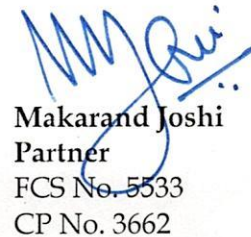 Makarand Joshi
Partner
FCS No. 5533
CP No. 3662